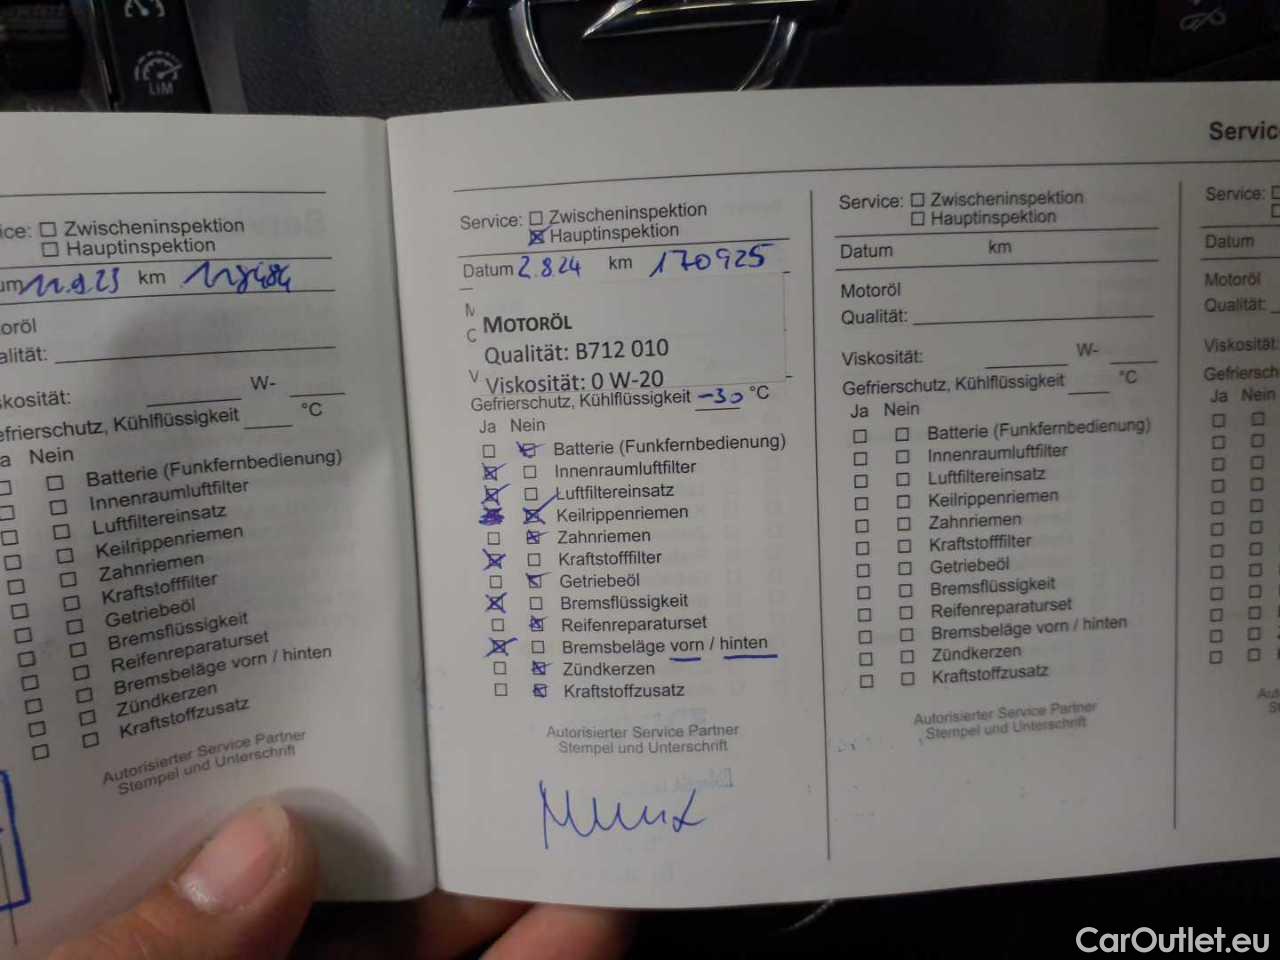 LIM
Servic
ice: Zwischeninspektion
Hauptinspektion
um 11.9.23 km 118484
oröl
alität:
skosität: W-
efrierschutz, Kühlflüssigkeit °C
a Nein
Batterie (Funkfernbedienung)
Innenraumluftfilter
Luftfiltereinsatz
Keilrippenriemen
Zahnriemen
Kraftstofffilter
Getriebeöl
Bremsflüssigkeit
Reifenreparaturset
Bremsbeläge vorn / hinten
Zündkerzen
Kraftstoffzusatz
Autorisierter Service Partner
Stempel und Unterschrift
Service: Zwischeninspektion
Hauptinspektion
Datum 2.8.24 km 170925
MOTORÖL
Qualität: B712 010
Viskosität: 0 W-20
Gefrierschutz, Kühlflüssigkeit -30 °C
Ja Nein
Batterie (Funkfernbedienung)
Innenraumluftfilter
Luftfiltereinsatz
Keilrippenriemen
Zahnriemen
Kraftstofffilter
Getriebeöl
Bremsflüssigkeit
Reifenreparaturset
Bremsbeläge vorn / hinten
Zündkerzen
Kraftstoffzusatz
Autorisierter Service Partner
Stempel und Unterschrift
Service: Zwischeninspektion
Hauptinspektion
Datum km
Motoröl
Qualität:
Viskosität: W-
Gefrierschutz, Kühlflüssigkeit °C
Ja Nein
Batterie (Funkfernbedienung)
Innenraumluftfilter
Luftfiltereinsatz
Keilrippenriemen
Zahnriemen
Kraftstofffilter
Getriebeöl
Bremsflüssigkeit
Reifenreparaturset
Bremsbeläge vorn / hinten
Zündkerzen
Kraftstoffzusatz
Autorisierter Service Partner
Stempel und Unterschrift
Service:
Datum
Motoröl
Qualität:
Viskosität:
Gefriersch
Ja Nein
CarOutlet.eu